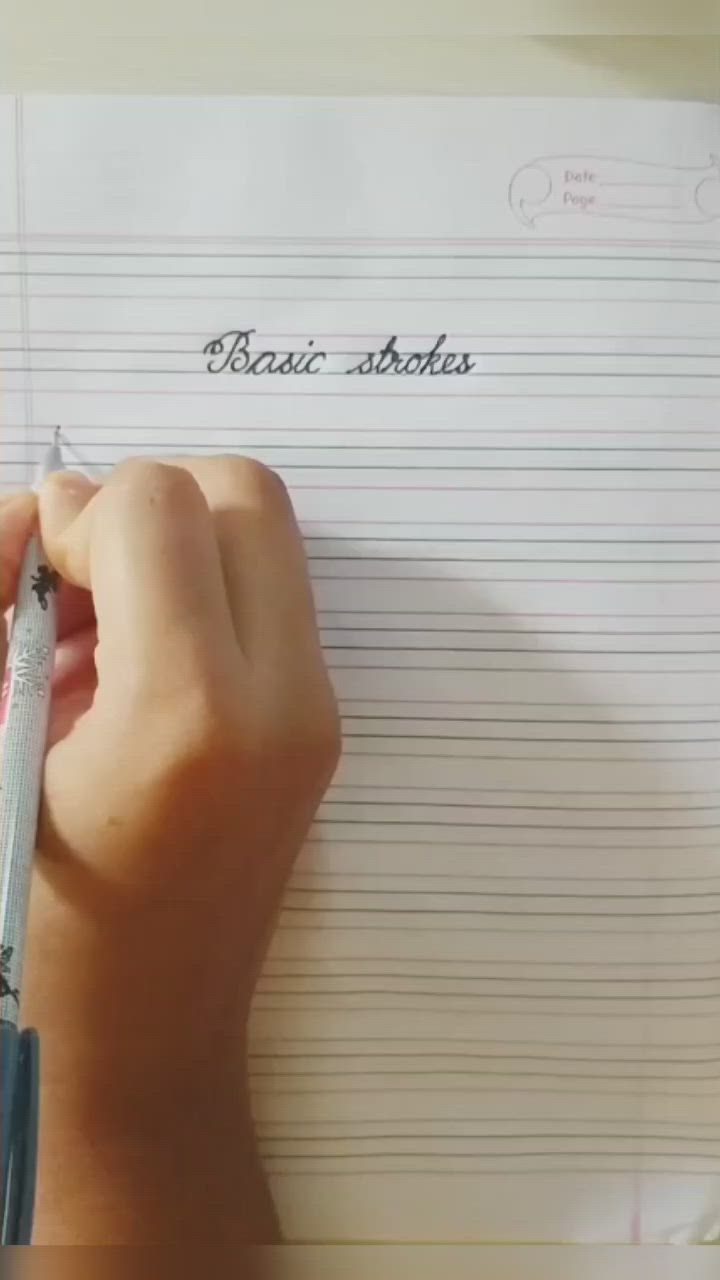 Date
Page
Basic strokes